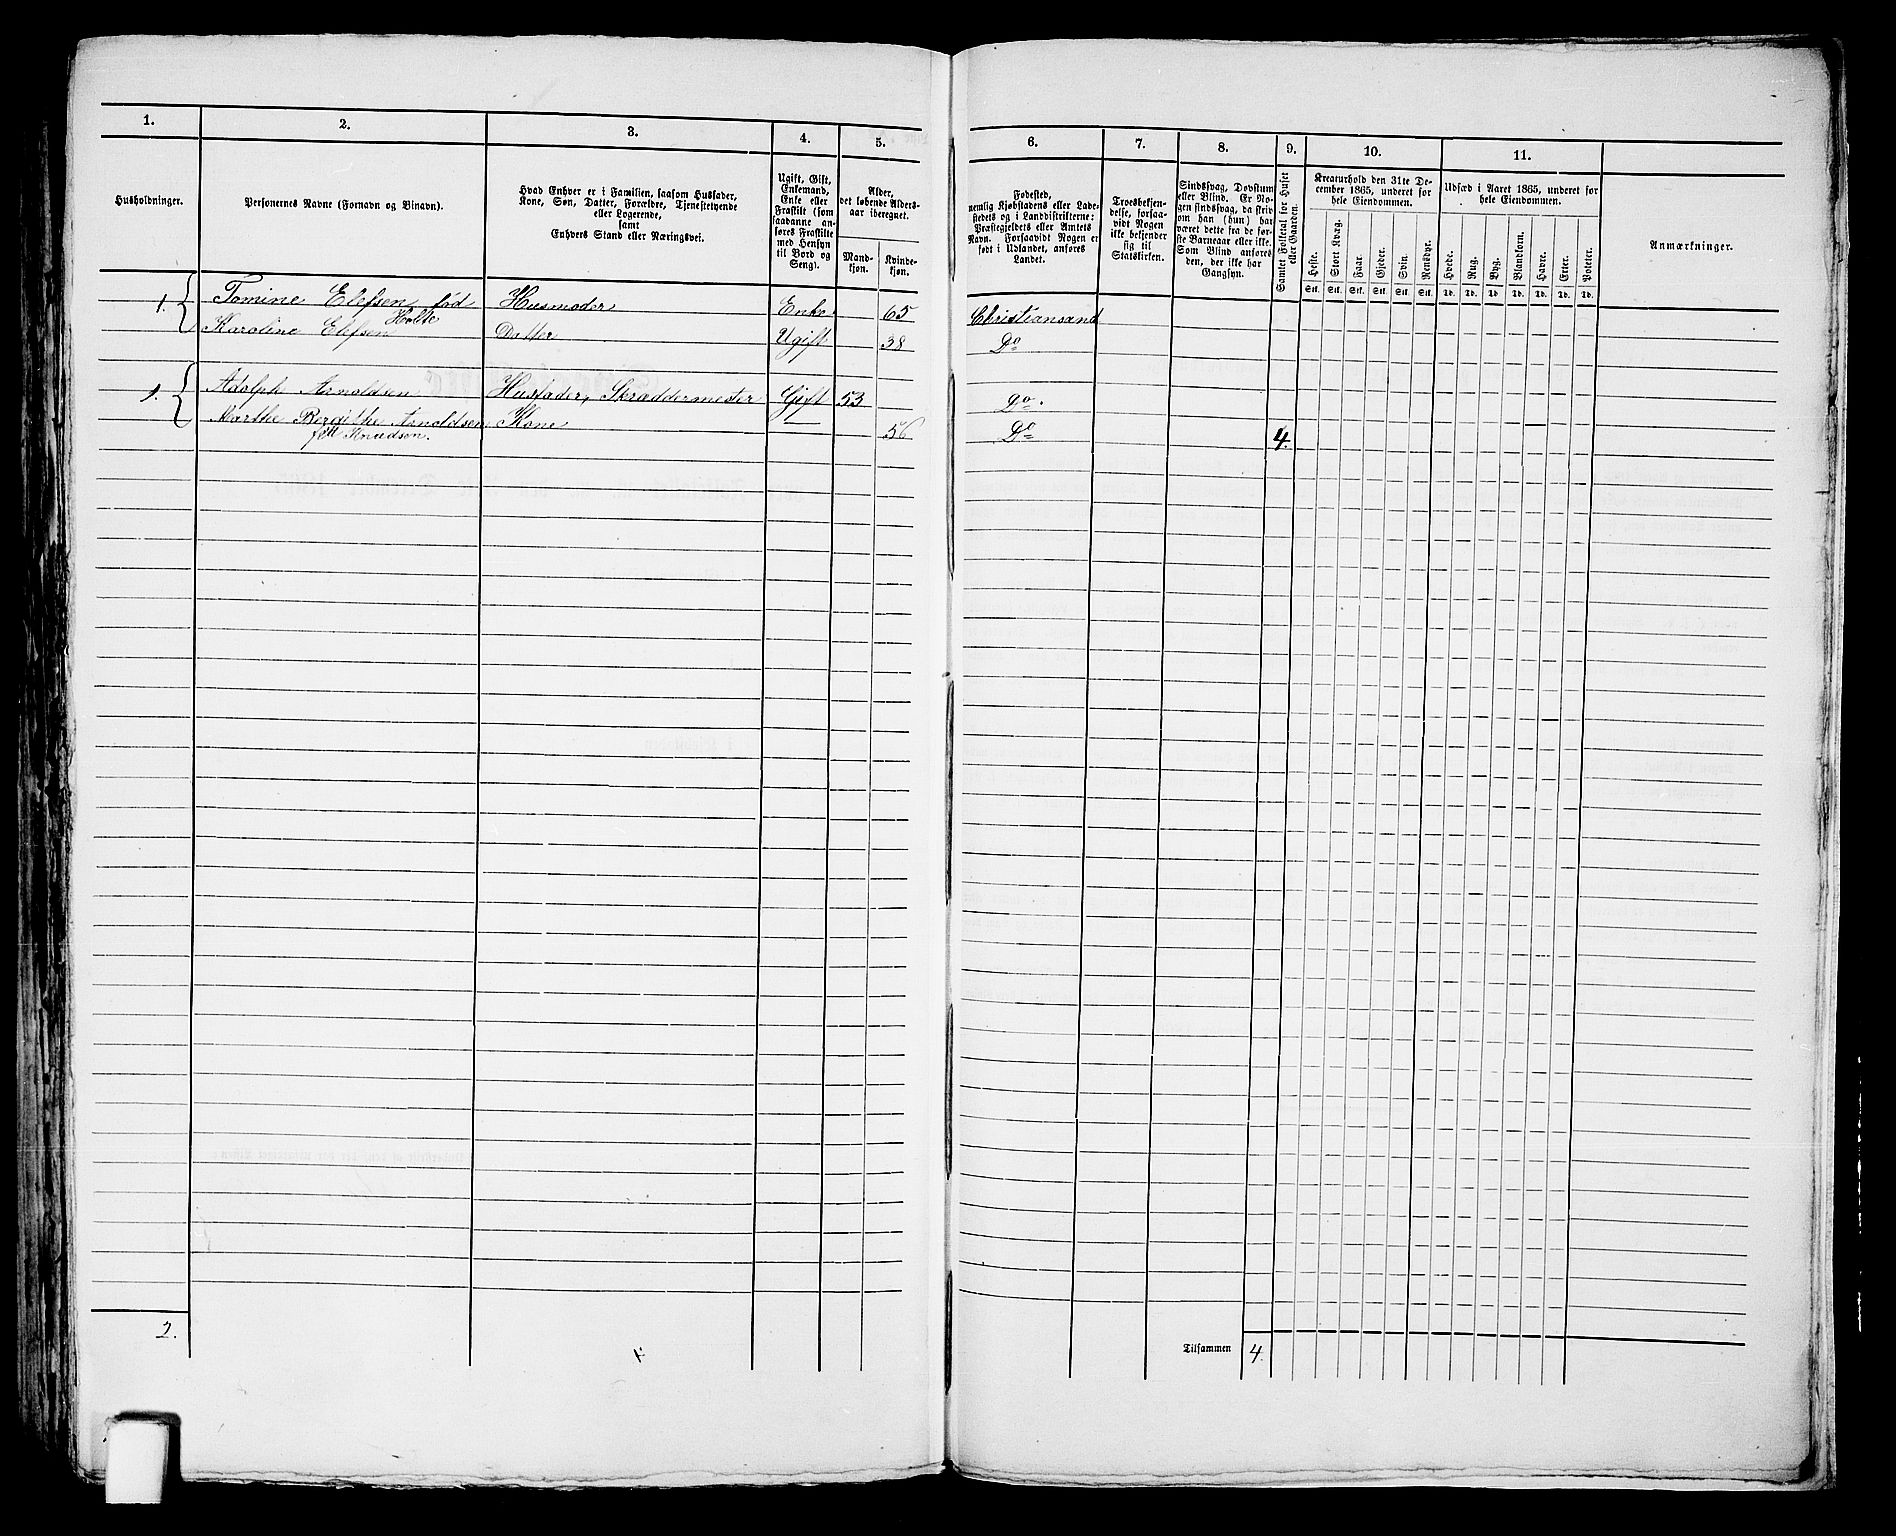 1. 2. 3. 4. 5. 6. 7. 8. 9. 10. 11.
Husholdninger.
Personernes Navne (Fornavn og Binavn).
Hvad Enhver er i Familien, saasom Husfader,
Kone, Søn, Datter, Forældre, Tjenestetyende
eller Logerende,
samt
Enhvers Stand eller Næringsvei.
Ugift, Gift,
Enkemand,
Enke eller
Fraskilt (som
saadanne an-
føres Fraskilte
med Hensyn
til Bord og
Seng).
Alder,
det løbende Alders-
aar iberegnet.
Mand-
kjøn.
Kvinde-
kjøn.
Fødested,
nemlig Kjøbstadens eller Lade-
stedets og i Landdistrikterne:
Præstegjeldets eller Amtets
Navn. Forsaavidt Nogen er
født i Udlandet, anføres
Landet.
Troesbekjen-
delse, forsaa-
vidt Nogen
ikke bekjender
sig til
Statskirken.
Sindssvag, Døvstum
eller Blind. Er No-
gen sindssvag, da skriv
om han (hun) har
været dette fra de før-
ste Barneaar eller ikke.
Som Blind anføres
den, der ikke har
Gangsyn.
Samlet Folketal for Huset
eller Gaarden.
Kreaturhold den 31te De-
cember 1865, underet for
hele Eiendommen.
Heste. Stort Kvæg. Faar. Gjeder. Svin. Rensdyr.
Stk. Stk. Stk. Stk. Stk. Stk.
Udsæd i Aaret 1865, underet for
hele Eiendommen.
Hvede. Rug. Byg. Blandkorn. Havre. Erter. Poteter.
Td. Td. Td. Td. Td. Td. Td.
Anmærkninger.
1. Tomine Elefsen fød Husmoder Enke 65 Christiansand
Holte
Karoline Elefsen Datter Ugift 38 Do
1. Adolph Arnoldsen Husfader, Skræddermester Gift 53 Do.
Marthe Birgithe Arnoldsen Kone — 56 Do 4.
født Knudsen.
2.
Tilsammen 4.